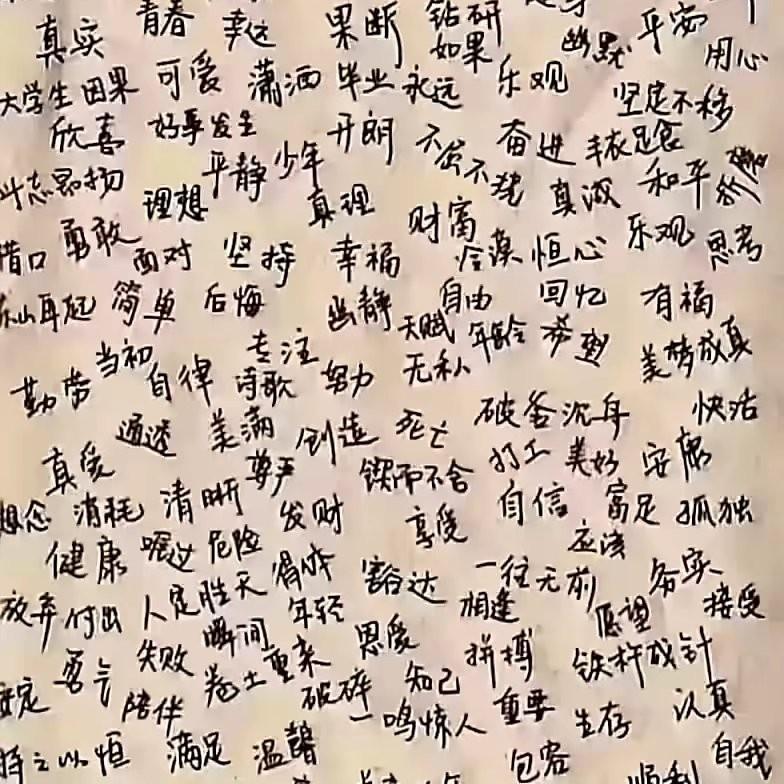 真实 青春 幸运 果断 钻研 幽默 平安 用心
大学生 因果 可爱 潇洒 毕业 永远 如果 乐观 坚定不移
欣喜 好事发生 平静 少年 开朗 不屈不挠 奋进 丰衣足食
斗志昂扬 理想 真理 财富 真诚 和平
借口 勇敢 面对 坚持 幸福 冷漠 恒心 乐观 思考
东山再起 简单 后悔 幽静 自由 回忆 有福
勤劳 当初 自律 专注 诗歌 努力 天赋 无私 年龄 希望 美梦成真
真爱 通透 美满 尊严 创造 死亡 锲而不舍 破釜沉舟 打工 美好 安康 快活
想念 消耗 清晰 发财 享受 自信 富足 孤独
健康 嘱过 危险 得体 豁达 一往无前 应该 务实
放弃 付出 人定胜天 瞬间 年轻 恩爱 相逢 愿望 接受
安定 勇气 失败 陪伴 卷土重来 破碎 知己 拼搏 铁杵成针
持之以恒 满足 温馨 一鸣惊人 重要 生存 认真
包容 顺利 自我